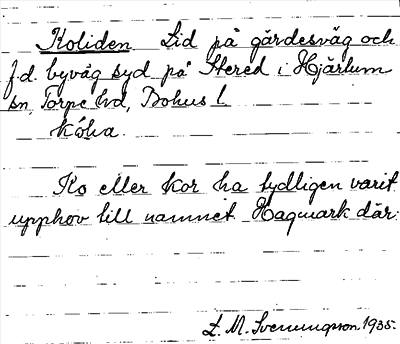 Koliden Lid på gärdesväg och
f.d. byväg syd på Stered i Hjärtum
sn, Torpe hd, Bohus l.
kóĺia.
Ko eller kor ha tydligen varit
upphov till namnet. Hagmark där.
L. M. Svenungsson. 1935.